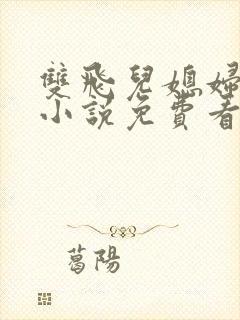 雙飛兒媳婦
小說免費看
葛陽